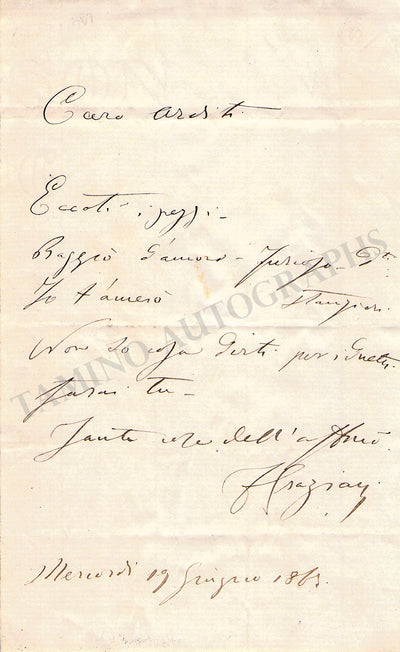 Caro Arditi
Eccoti i pezzi -
Raggio d'amore - Furioso - Dti
Io t'amerò Stanzieri
Non so cosa dirti per i Duetti
farai tu -
Tante cose dell' affmo
F Graziani
Mercordì 19 Giugno 186
TAMINO AUTOGRAPHS